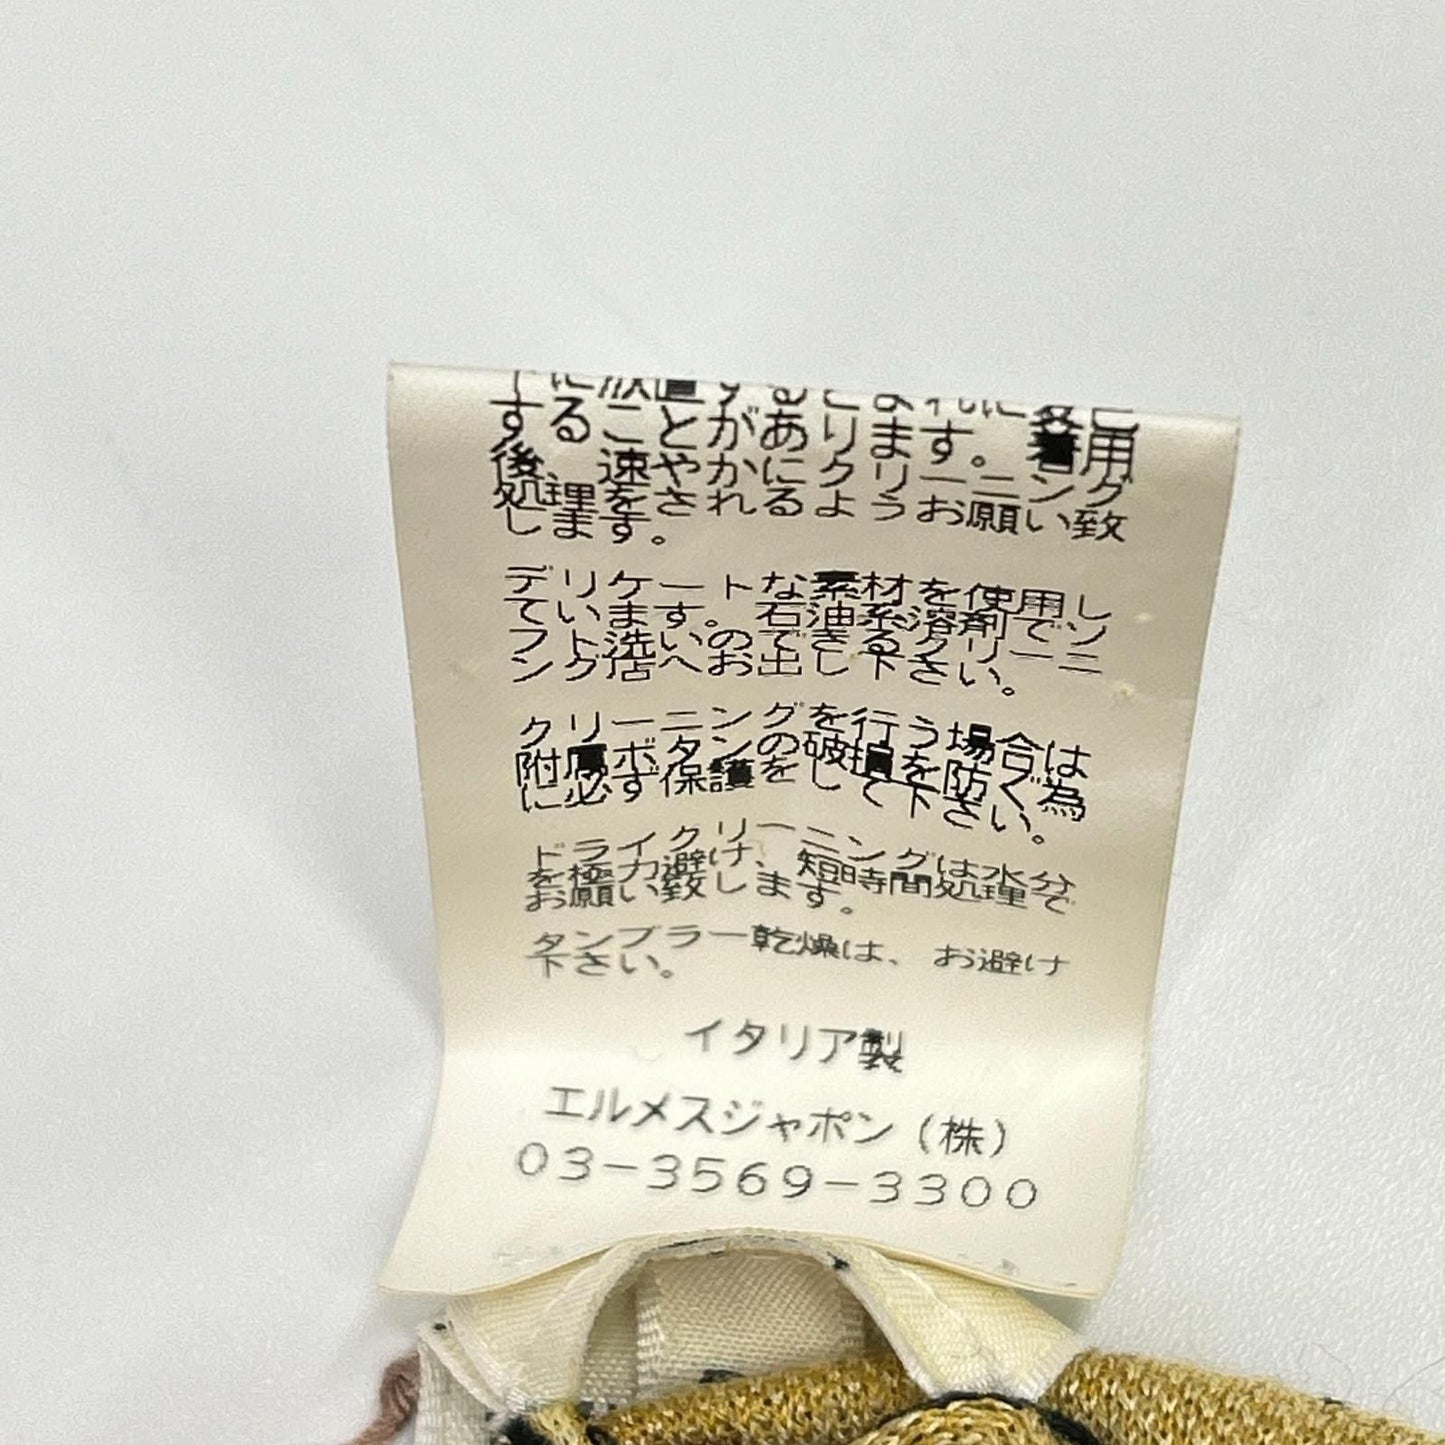 下に放置するとまれに変色
することがあります。着用
後、速やかにクリーニング
処理をされるようお願い致
します。
デリケートな素材を使用し
ています。石油系溶剤でソ
フト洗いのできるクリーニ
ング店へお出し下さい。
クリーニングを行う場合は
附属ボタンの破損を防ぐ為
に必ず保護をして下さい。
ドライクリーニングは水分
を極力避け、短時間処理で
お願い致します。
タンブラー乾燥は、お避け
下さい。
イタリア製
エルメスジャポン（株）
03-3569-3300